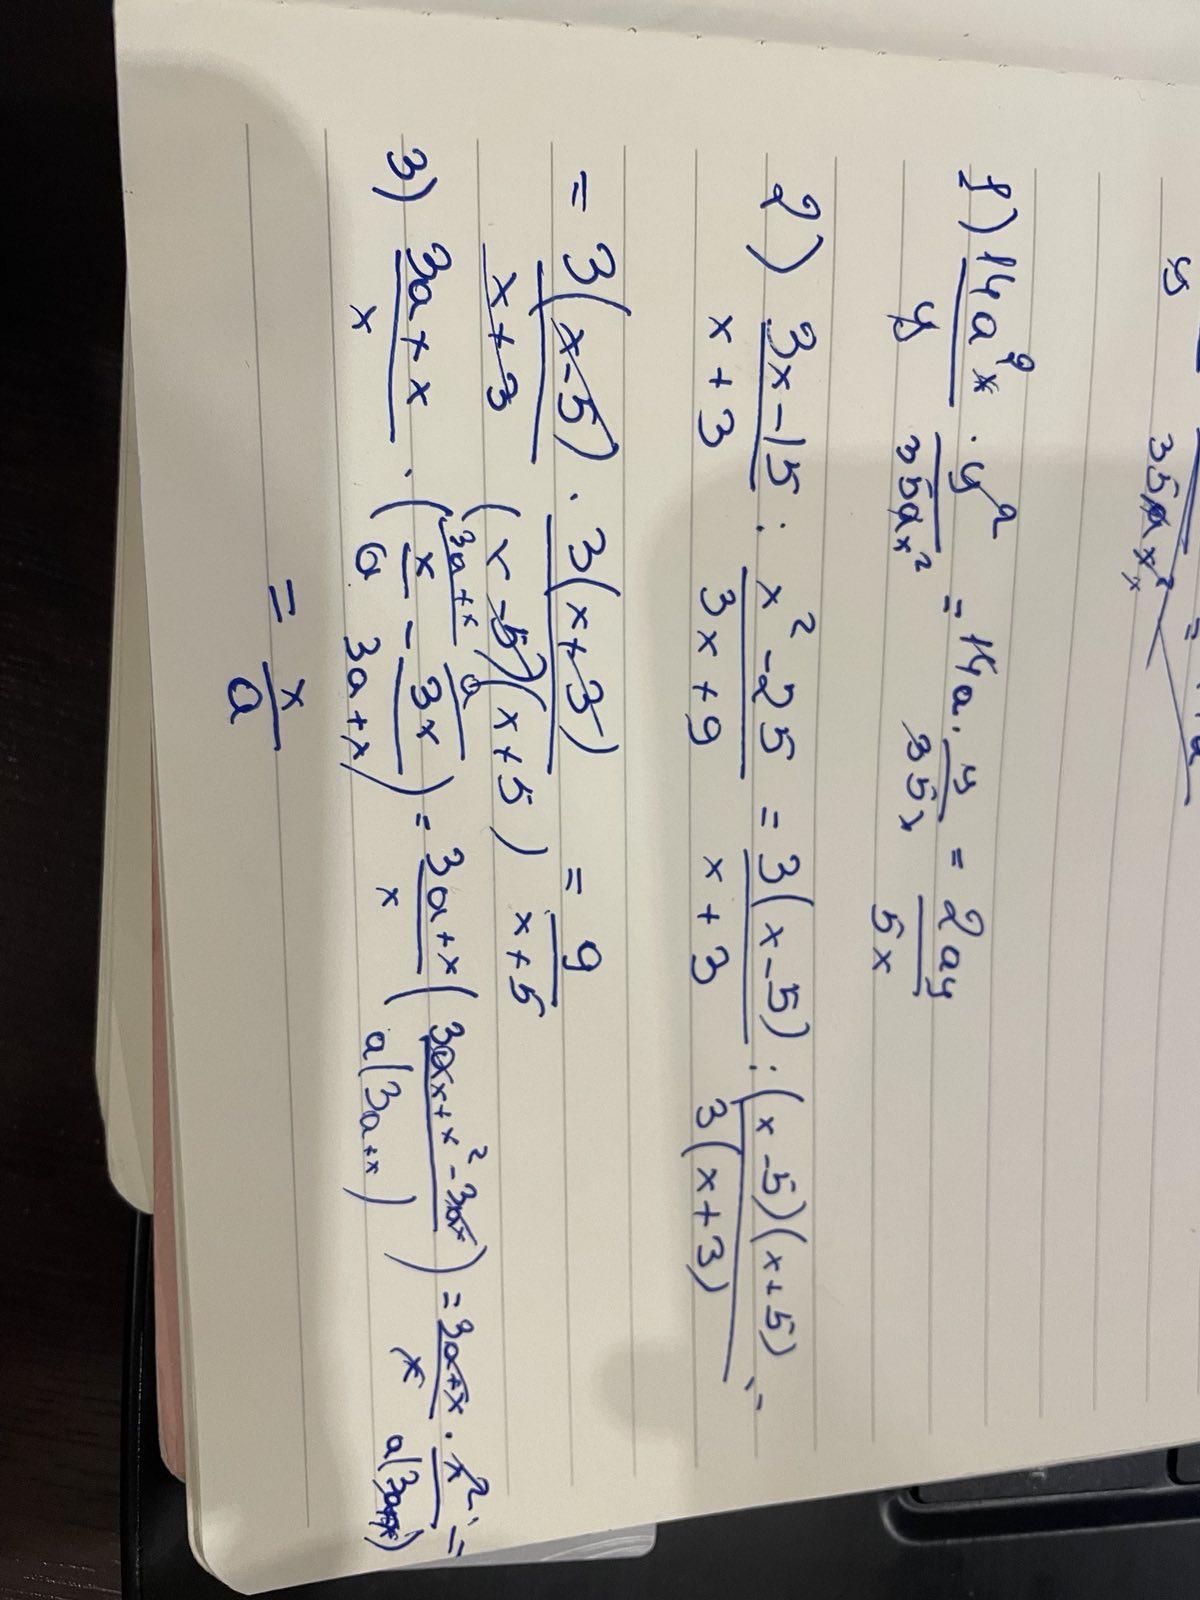 y 35ax² =
1) 14a²x/y · y²/35ax² = 14a · y/35x = 2ay/5x
2) 3x-15/x+3 : x²-25/3x+9 = 3(x-5)/x+3 : (x-5)(x+5)/3(x+3) =
= 3(x-5)/x+3 · 3(x+3)/(x-5)(x+5) = 9/x+5
3) 3a+x/x · (x/a - 3x/3a+x) = 3a+x/x (3ax+x²-3ax/a(3a+x)) = 3a+x/x · x²/a(3a+x) =
= x/a